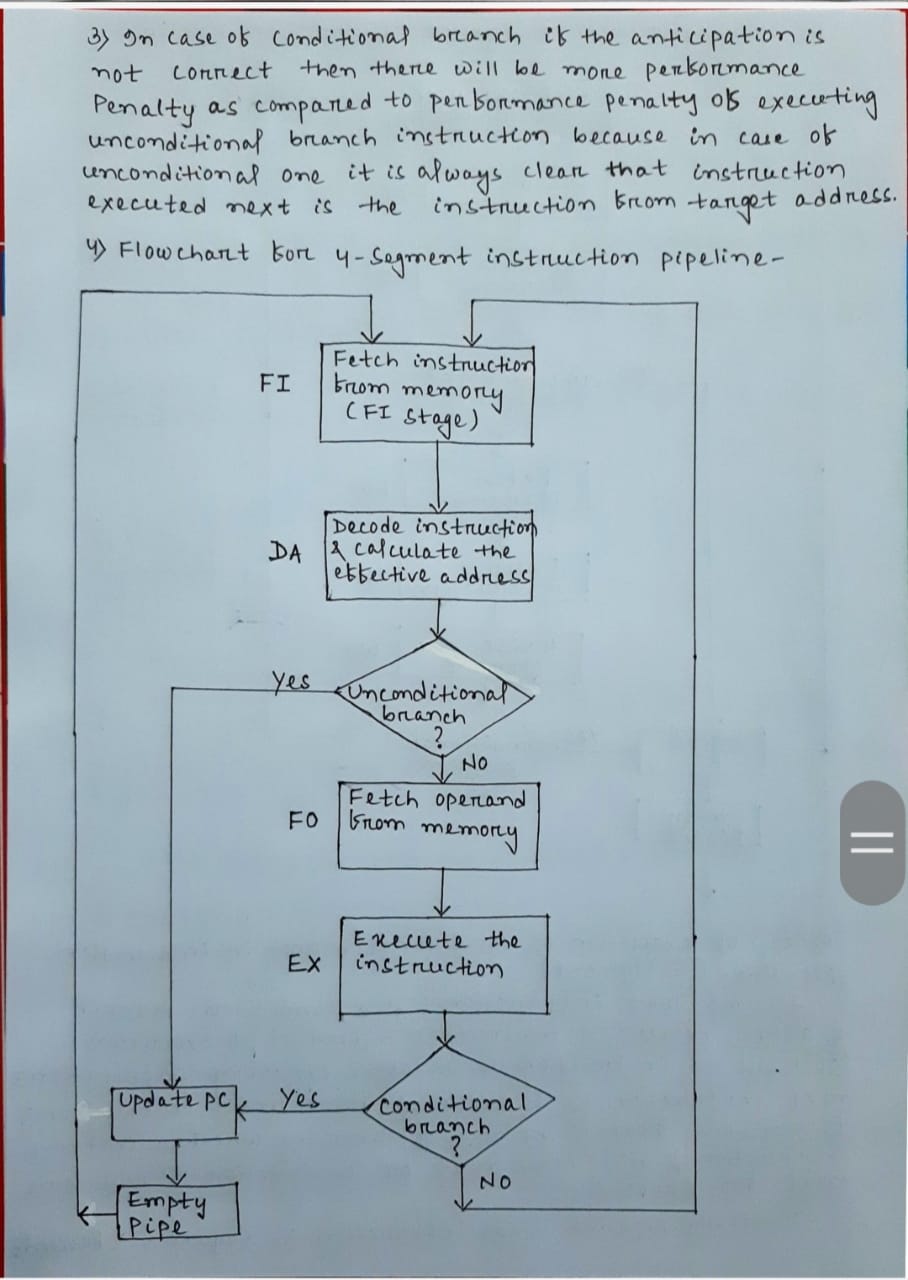 3) In case of conditional branch if the anticipation is
not correct then there will be more performance
Penalty as compared to performance penalty of executing
unconditional branch instruction because in case of
unconditional one it is always clear that instruction
executed next is the instruction from target address.
4) Flowchart for 4-Segment instruction pipeline-
FI
Fetch instruction
from memory
(FI Stage)
DA
Decode instruction
& calculate the
effective address
Yes
Unconditional
branch
?
NO
FO
Fetch operand
from memory
EX
Execute the
instruction
Update PC
Yes
Conditional
branch
?
NO
Empty
Pipe